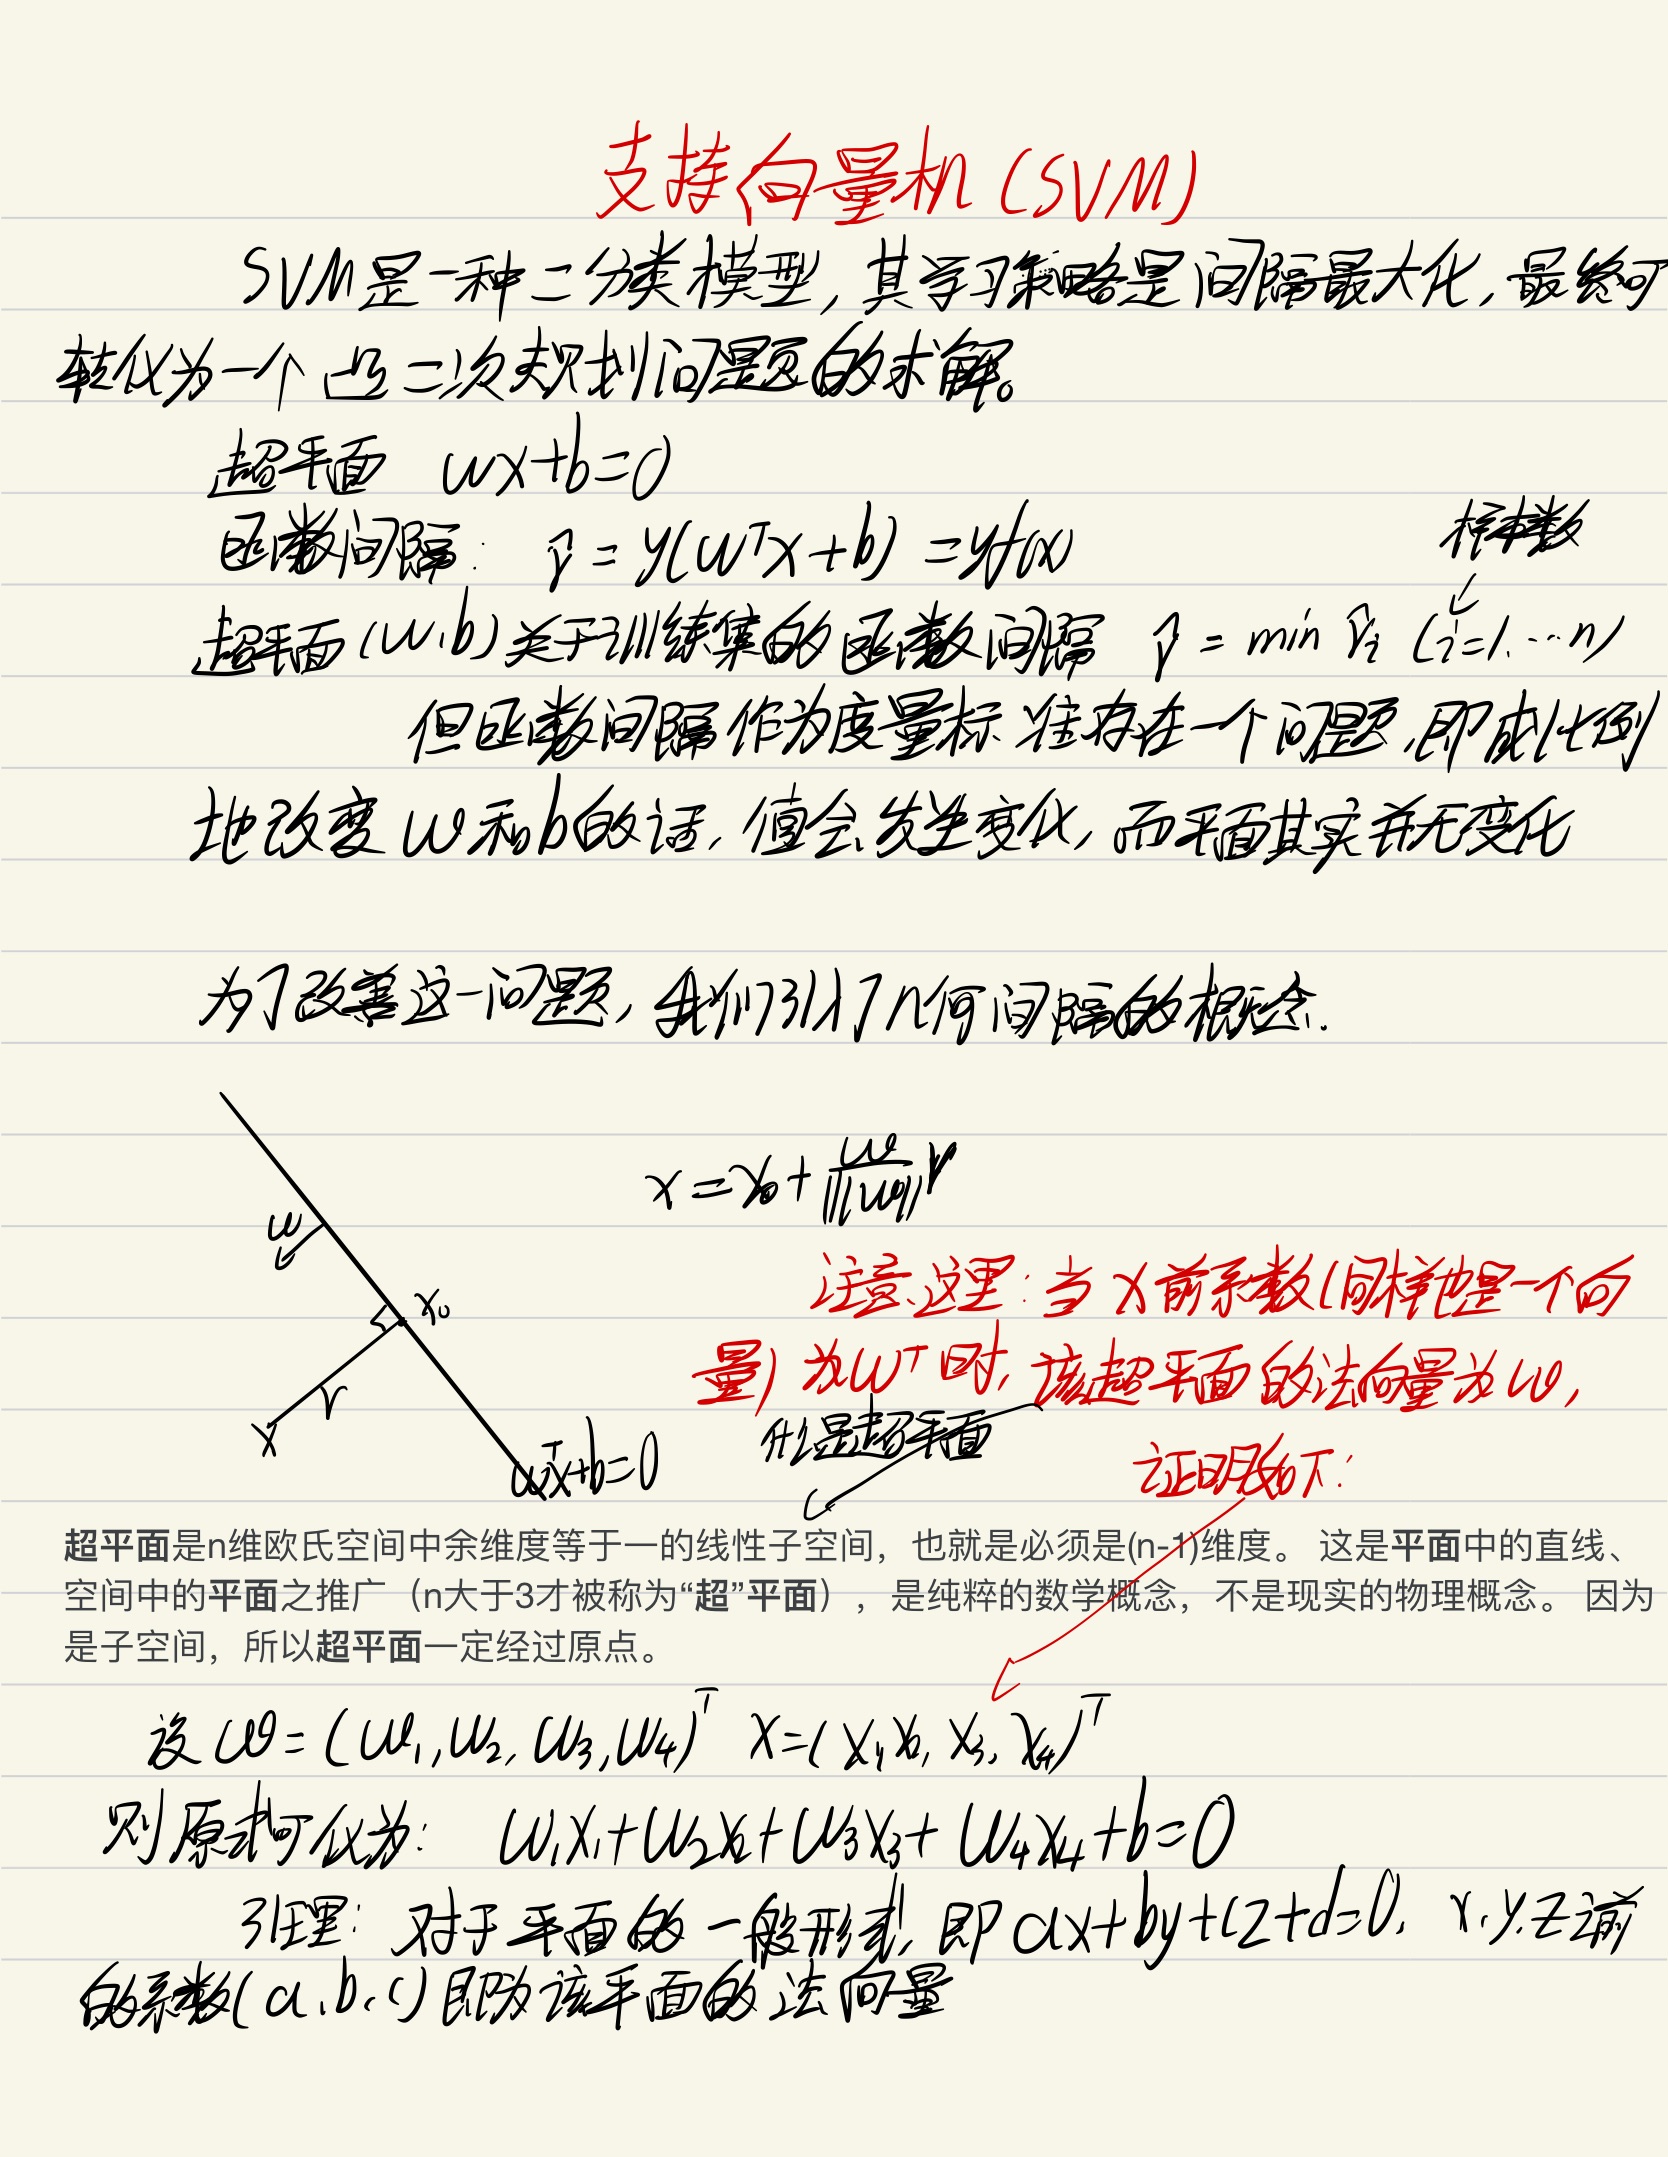 支持向量机(SVM)
SVM是一种二分类模型,其学习策略是间隔最大化,最终可
转化为一个凸二次规划问题的求解。
超平面 wx+b=0
函数间隔: γ̂ = y(wᵀx+b) = yf(x)
样本数
超平面(w,b)关于训练集的函数间隔 γ̂ = min γ̂ᵢ (i=1,…n)
但函数间隔作为度量标准存在一个问题,即成比例
地改变w和b的话,值会发生变化,而平面其实并无变化
为了改善这一问题,我们引入了几何间隔的概念.
x = x₀ + w/||w|| r
w
x₀
r
x
wᵀx+b=0
注意这里:当x前系数(同样也是一个向
量)为wᵀ时,该超平面的法向量为w,
什么是超平面
证明如下:
超平面是n维欧氏空间中余维度等于一的线性子空间,也就是必须是(n-1)维度。 这是平面中的直线、
空间中的平面之推广(n大于3才被称为“超”平面),是纯粹的数学概念,不是现实的物理概念。 因为
是子空间,所以超平面一定经过原点。
设 w=(w₁,w₂,w₃,w₄)ᵀ x=(x₁,x₂,x₃,x₄)ᵀ
则原式可化为: w₁x₁+w₂x₂+w₃x₃+w₄x₄+b=0
引理:对于平面的一般形式,即ax+by+cz+d=0, x,y,z前
的系数(a,b,c)即为该平面的法向量